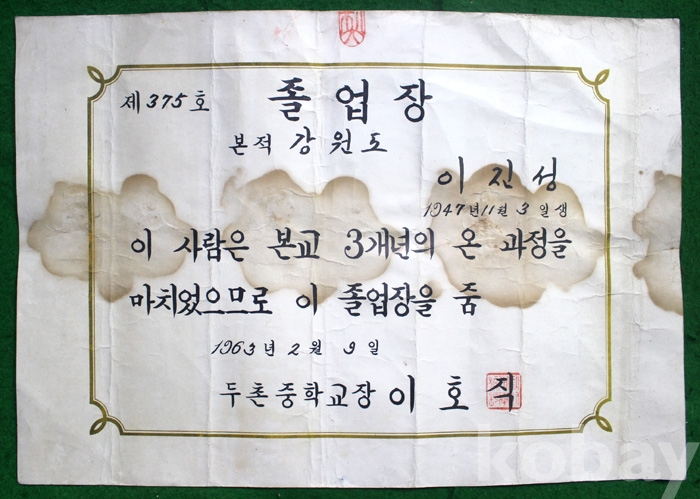 제 375 호
졸업장
본적 강원도
이진성
1947년 11월 3일생
이 사람은 본교 3개년의 온 과정을
마치었으므로 이 졸업장을 줌
1963년 2월 9일
두촌중학교장 이호직
kobay